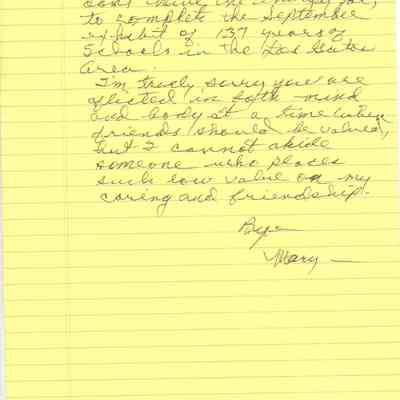 to complete the September
exhibit of 137 years of
Schools in the Los Gatos
Area.
I'm truly sorry you are
aflicted in both mind
and body at a time when
friends should be valued,
but I cannot abide
someone who places
such low value on my
caring and friendship.
Bye
Mary